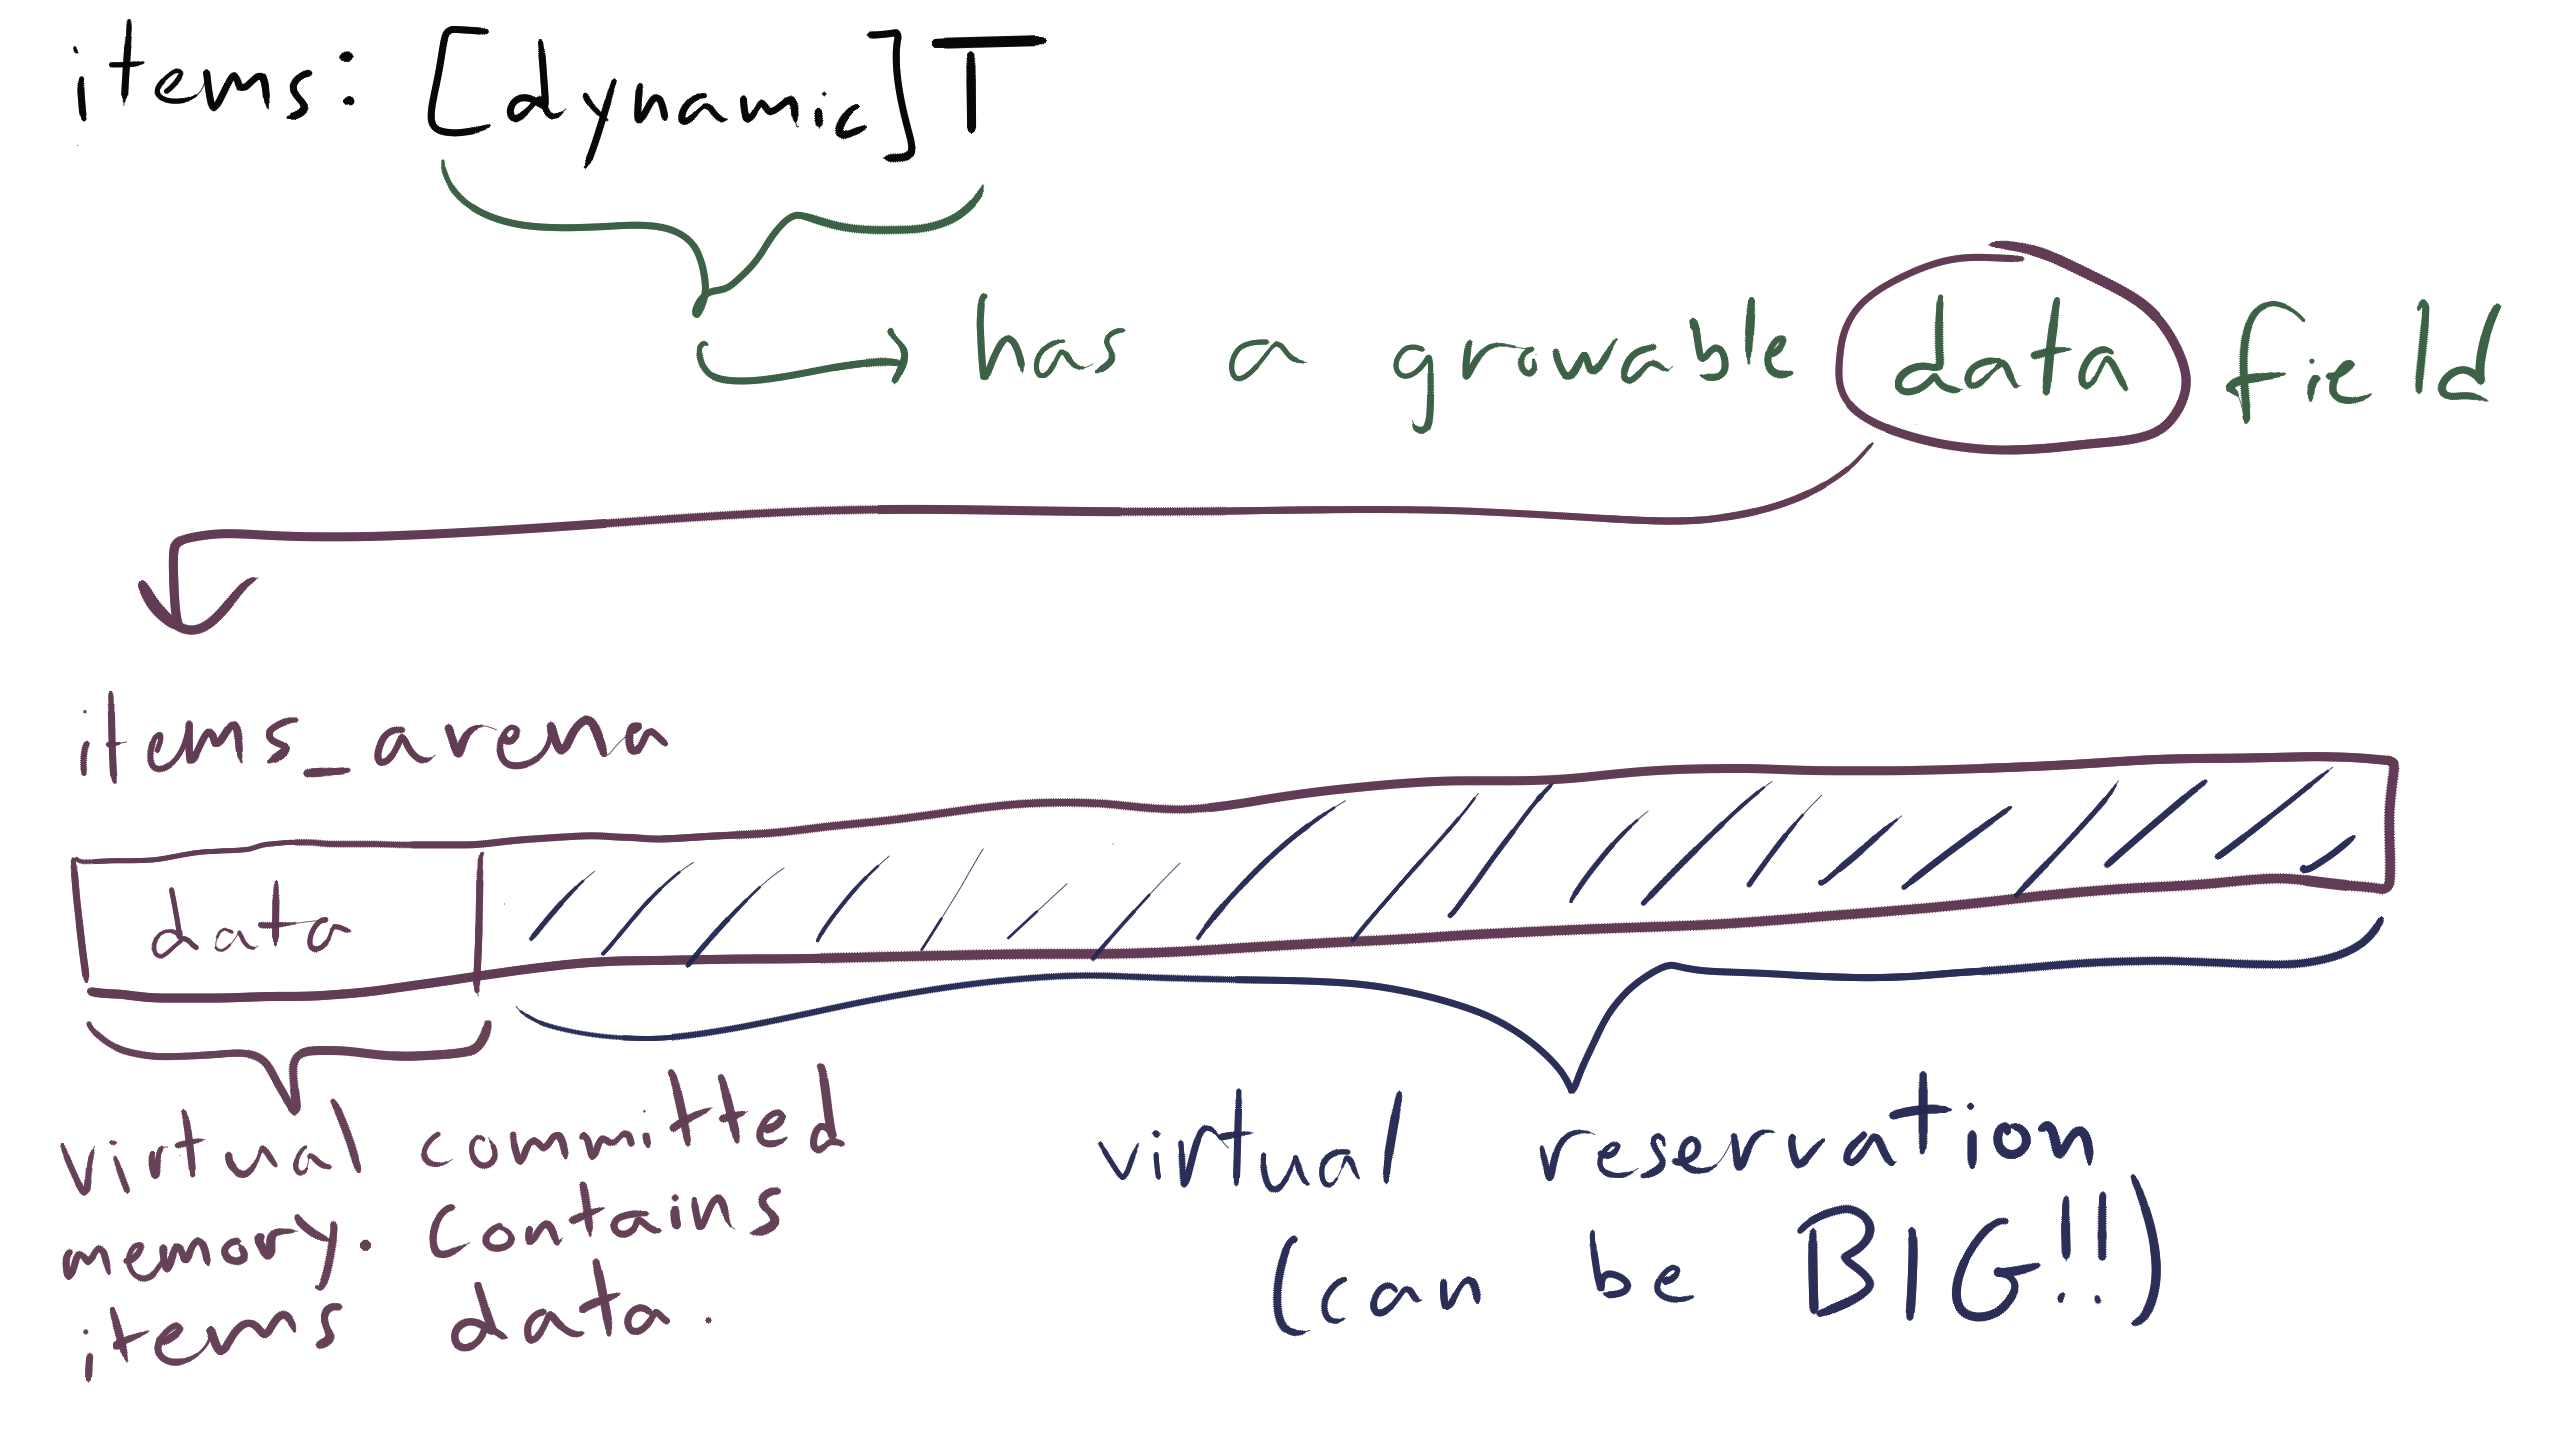 items: [dynamic]T
has a growable data field
items_arena
data
virtual committed
memory. Contains
items data.
virtual reservation
(can be BIG!!)